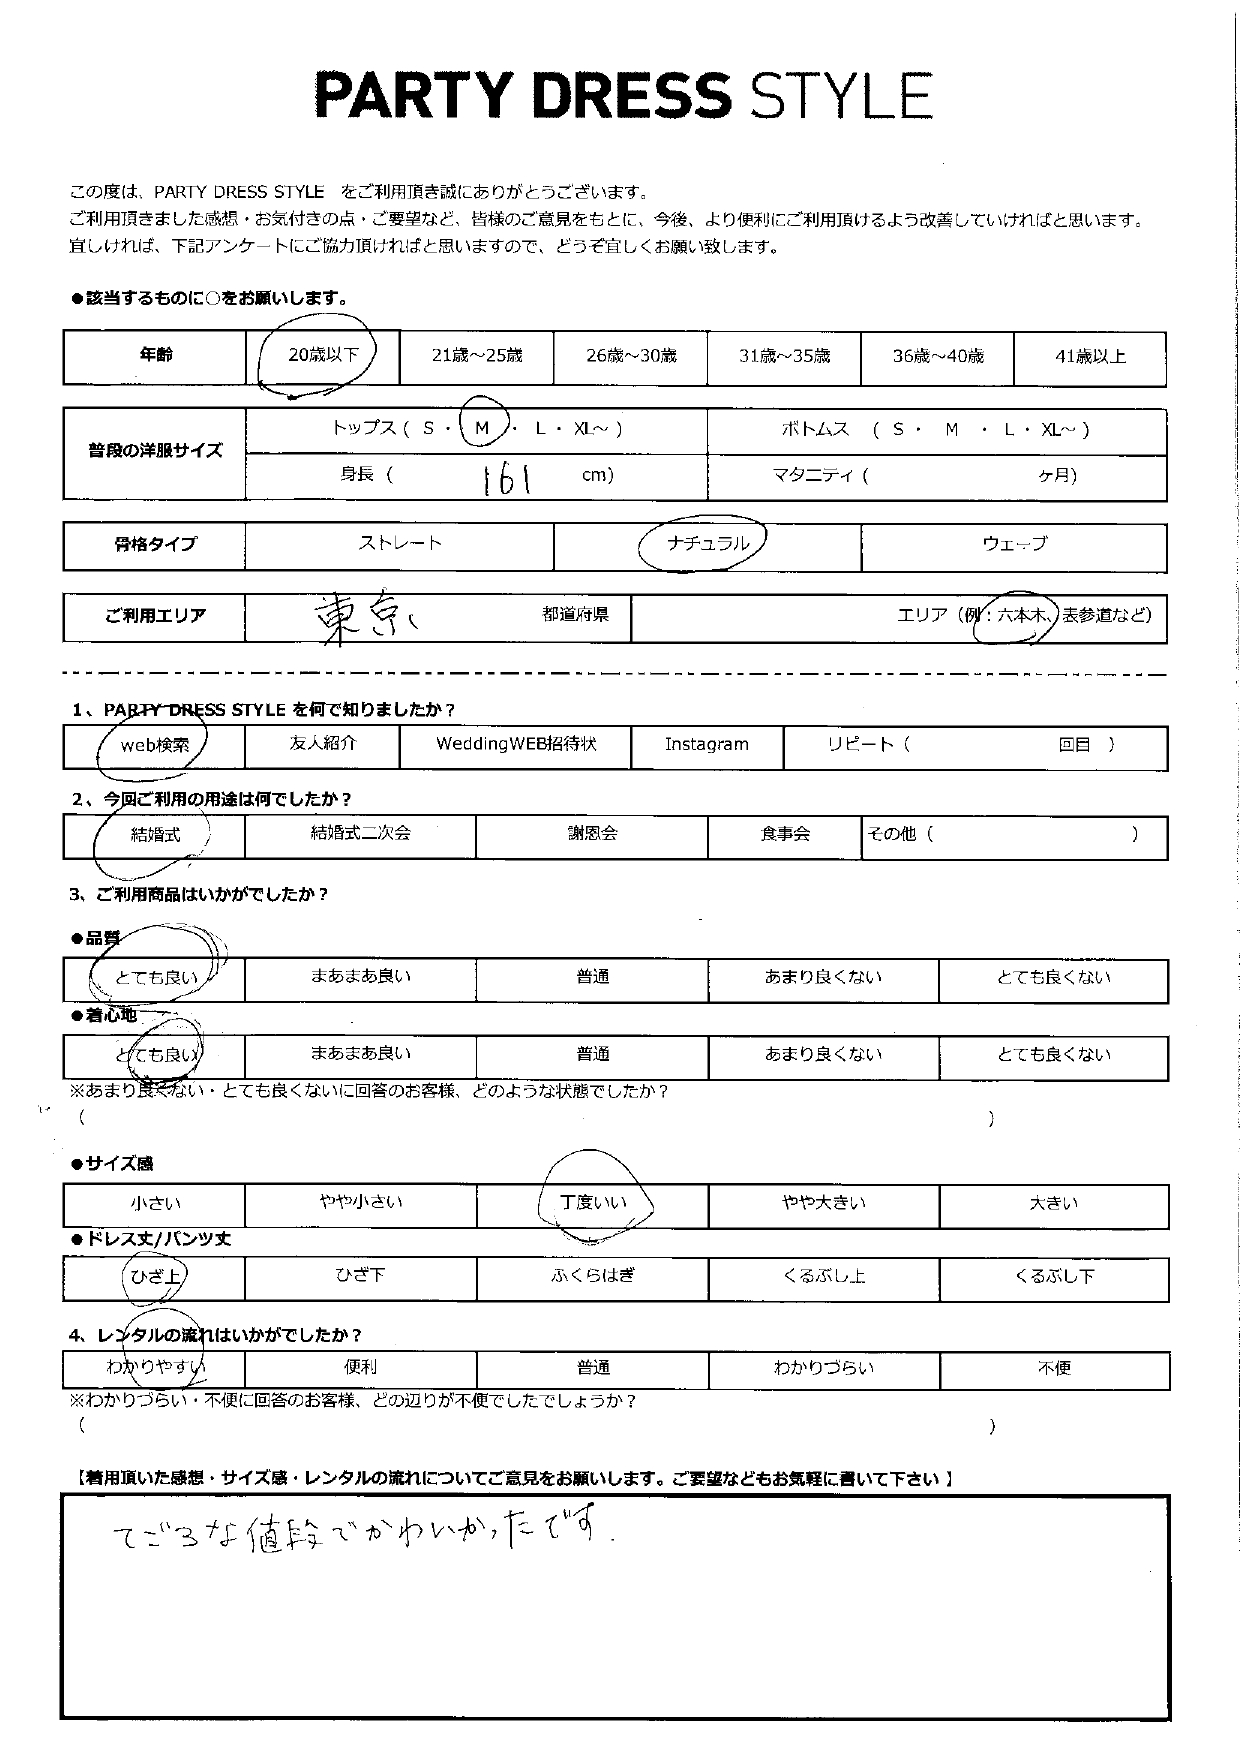 PARTY DRESS STYLE
この度は、PARTY DRESS STYLE をご利用頂き誠にありがとうございます。
ご利用頂きました感想・お気付きの点・ご要望など、皆様のご意見をもとに、今後、より便利にご利用頂けるよう改善していければと思います。
宜しければ、下記アンケートにご協力頂ければと思いますので、どうぞ宜しくお願い致します。
●該当するものに○をお願いします。
年齢 20歳以下 21歳～25歳 26歳～30歳 31歳～35歳 36歳～40歳 41歳以上
普段の洋服サイズ トップス ( S ・ M ・ L ・ XL～ ) ボトムス ( S ・ M ・ L ・ XL～ )
身長 ( 161 cm) マタニティ ( ヶ月)
骨格タイプ ストレート ナチュラル ウェーブ
ご利用エリア 東京 都道府県 エリア（例：六本木、表参道など）
1、PARTY DRESS STYLE を何で知りましたか？
web検索 友人紹介 WeddingWEB招待状 Instagram リピート ( 回目 )
2、今回ご利用の用途は何でしたか？
結婚式 結婚式二次会 謝恩会 食事会 その他 ( )
3、ご利用商品はいかがでしたか？
●品質
とても良い まあまあ良い 普通 あまり良くない とても良くない
●着心地
とても良い まあまあ良い 普通 あまり良くない とても良くない
※あまり良くない・とても良くないに回答のお客様、どのような状態でしたか？
( )
●サイズ感
小さい やや小さい 丁度いい やや大きい 大きい
●ドレス丈/パンツ丈
ひざ上 ひざ下 ふくらはぎ くるぶし上 くるぶし下
4、レンタルの流れはいかがでしたか？
わかりやすい 便利 普通 わかりづらい 不便
※わかりづらい・不便に回答のお客様、どの辺りが不便でしたでしょうか？
( )
【着用頂いた感想・サイズ感・レンタルの流れについてご意見をお願いします。ご要望などもお気軽に書いて下さい 】
てごろな値段でかわいかったです.